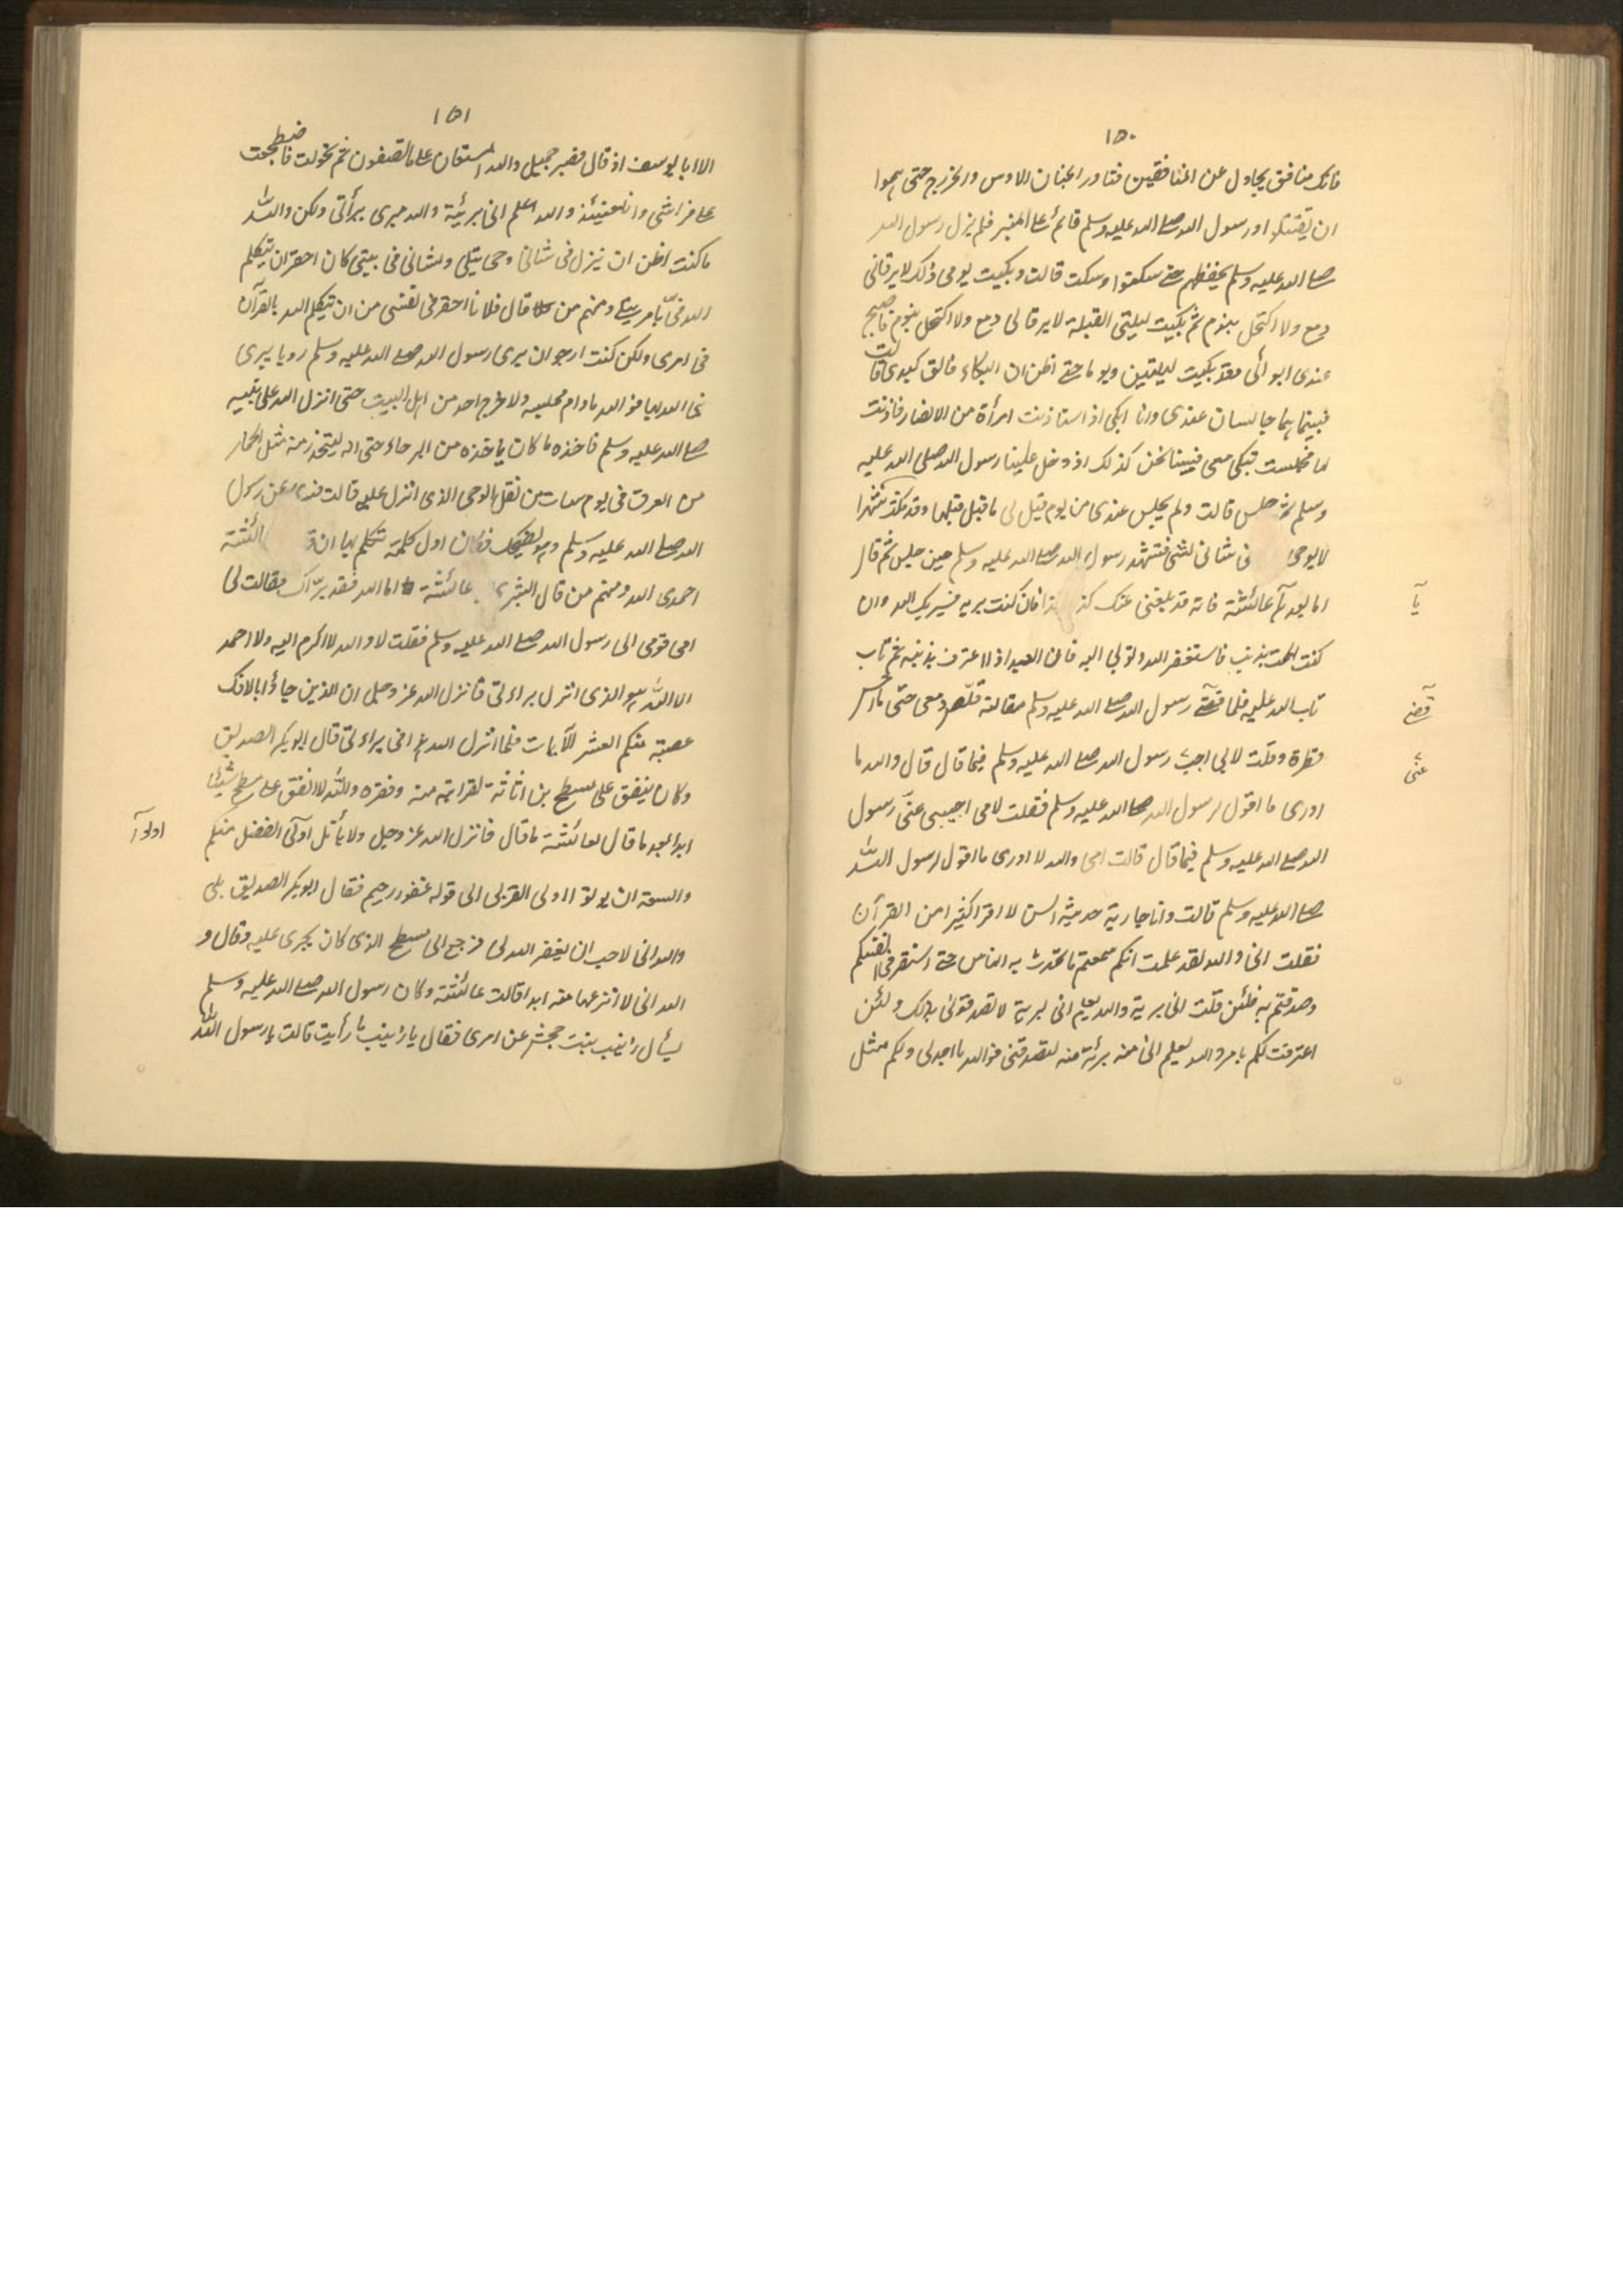 ١٥٠
فانك منافق يجادل عن المنافقين فتثاور الحيان الاوس والخزرج حتى هموا
ان يقتتلوا ورسول الله صلى الله عليه وسلم قائم على المنبر فلم يزل رسول الله
صلى الله عليه وسلم يخفضهم حتى سكتوا وسكت قالت وبكيت يومى ذلك لا يرقأ لى
دمع ولا اكتحل بنوم ثم بكيت ليلتى المقبلة لا يرقا لى دمع ولا اكتحل بنوم فاصبح
عندى ابوائى وقد بكيت ليلتين ويوما حتى اظن ان البكاء فالق كبدى قالت
فبينما هما جالسان عندى وانا ابكى اذ استاذنت امرأة من الانصار فاذنت
لها فجلست تبكى معى فبينا نحن كذلك اذ دخل علينا رسول الله صلى الله عليه
وسلم ثم جلس قالت ولم يجلس عندى من يوم قيل لى ما قيل قبلها وقد مكث شهرا
لا يوحى فى شانى لشى فتشهد رسول الله صلى الله عليه وسلم حين جلس ثم قال
اما بعد يا عائشة فانه قد بلغنى عنك كذا فان كنت بريه فسيريك الله وان
يا
كنت الممت بذنب فاستغفر الله وتوبى اليه فان العبد اذا اعترف بذنبه ثم تاب
تاب الله عليه فلما قضى رسول الله صلى الله عليه وسلم مقالته قلص دمعى حتى ما احس
قضى
قطرة وقلت لابى اجب رسول الله صلى الله عليه وسلم فيما قال قال والله ما
عنى
ادرى ما اقول لرسول الله صلى الله عليه وسلم فقلت لامى اجيبى عنى رسول
الله صلى الله عليه وسلم فيما قال قالت امى والله لا ادرى ما اقول لرسول الله
صلى الله عليه وسلم قالت وانا جارية حديثة السن لا اقرا كثيرا من القرآن
فقلت انى والله لقد علمت انكم سمعتم ما تحدث به الناس حتى استقر فى انفسكم
وصدقتم به فلئن قلت انى برية والله يعلم انى لبرية لا تصدقونى بذلك ولئن
اعترفت لكم بامر والله يعلم انى منه برئة منه لتصدقنى فوالله ما اجد لى ولكم مثل
١٥١
الا ابا يوسف اذ قال فصبر جميل والله المستعان على ما تصفون ثم تحولت فاضطجعت
على فراشى وانا حينئذ والله اعلم انى بريئة والله مبرى ببرأتى ولكن والله
ما كنت اظن ان ينزل فى شانى وحى يتلى ولشانى فى بيتى كان احقر ان يتكلم
الله فى بامر يتلى ومنهم من قال فلانا احقر فى نفسى من ان يتكلم الله بالقرآن
فى امرى ولكن كنت ارجو ان يرى رسول الله صلى الله عليه وسلم رويا يبرى
نى الله بها فو الله ما دام مجلسه ولا خرج احد من اهل البيت حتى انزل الله على نبيه
صلى الله عليه وسلم فاخذه ما كان ياخذه من البرحاء حتى انه ليتحذر منه مثل الجمار
من العرق فى يوم شات من ثقل الوحى الذى انزل عليه قالت فسرى عن رسول
الله صلى الله عليه وسلم وهو يضحك فكان اول كلمة تكلم بها ان ق ائشة
احمدى الله ومنهم من قال البشرى يا عائشة اما الله فقد برّاك فقالت لى
امى قومى الى رسول الله صلى الله عليه وسلم فقلت لا والله لا اكرم اليه ولا احمد
الا الله هو الذى انزل براءتى فانزل الله عز وجل ان الذين جاؤا بالافك
عصبة منكم العشر الآيات فلما انزل الله هذا فى براءتى قال ابوبكر الصديق
وكان ينفق على مسطح بن اثاثة لقرابته منه وفقره والله لا انفق على مسطح شيئا
ابدا بعد ما قال لعائشة ما قال فانزل الله عز وجل ولا يأتل اولى الفضل منكم
اولوا
والسعة ان يوتوا اولى القربى الى قوله غفور رحيم فقال ابوبكر الصديق بلى
والله انى لاحب ان يغفر الله لى فرجع الى مسطح الذى كان يجرى عليه وقال و
الله انى لا انزعها منه ابدا قالت عائشة وكان رسول الله صلى الله عليه وسلم
يسأل زينب بنت جحش عن امرى فقال يا زينب ما رأيت قالت يا رسول الله